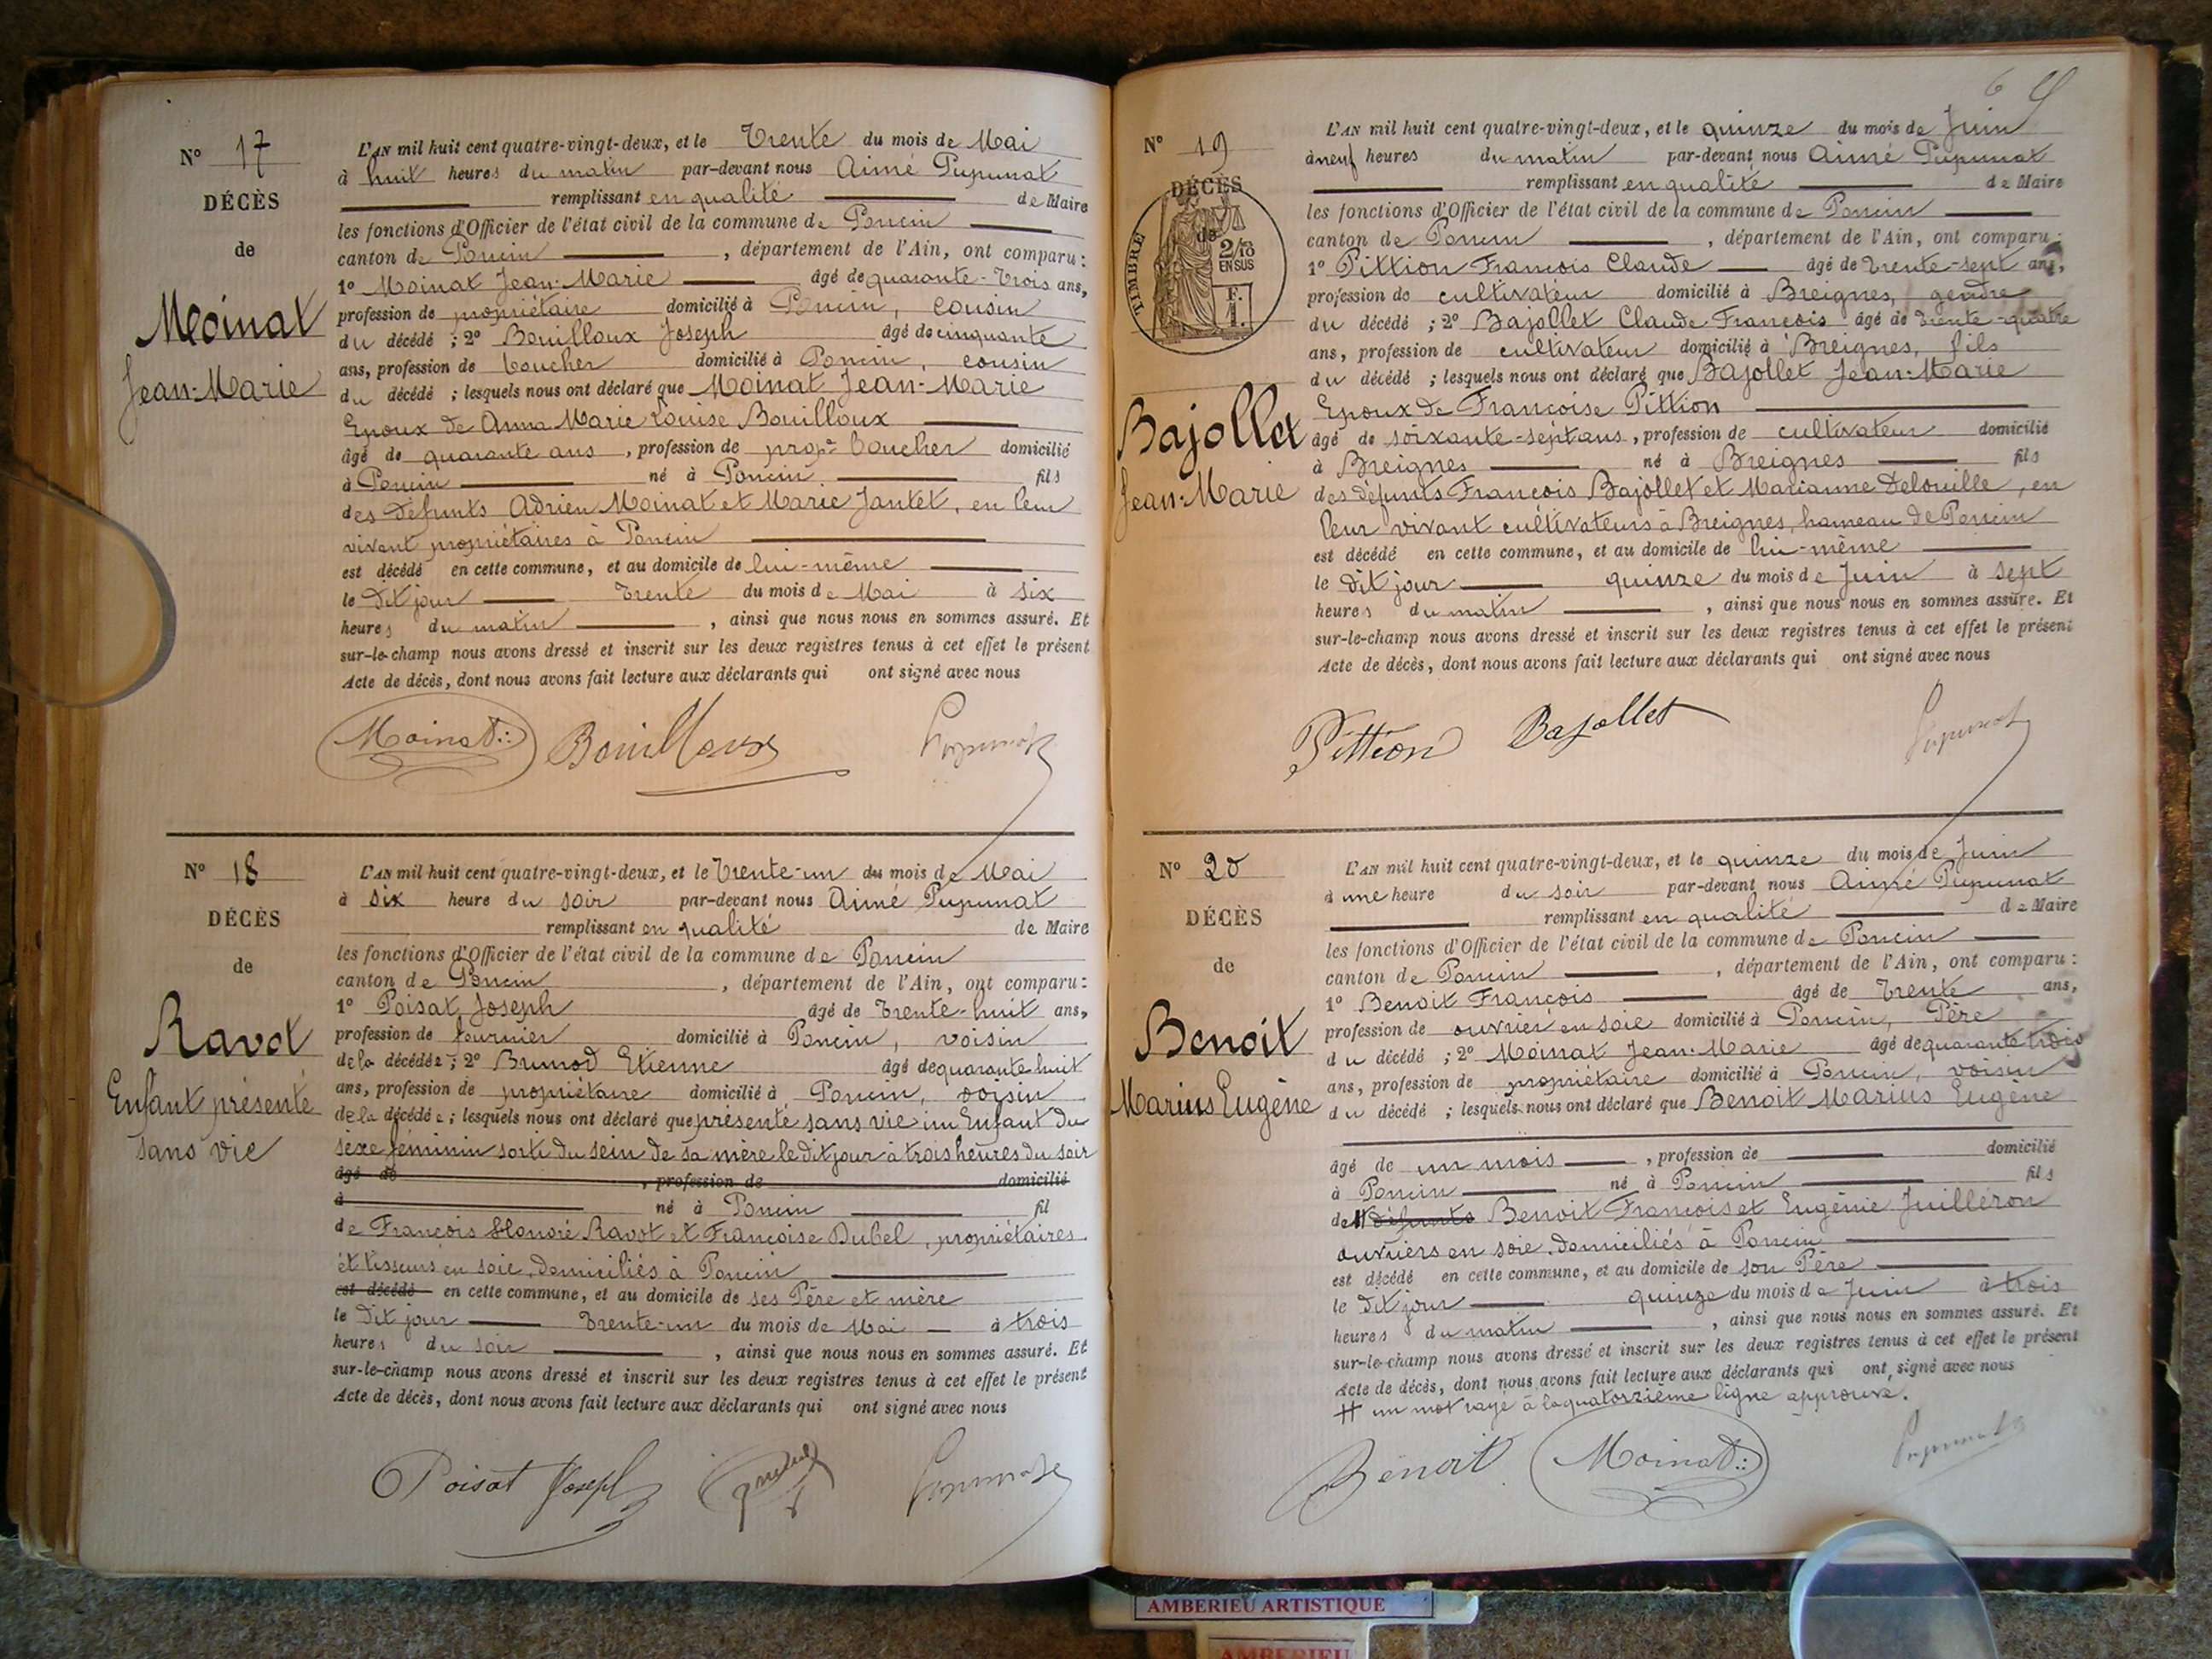 N° 17
DÉCÈS
de
Moinat
Jean-Marie
L'AN mil huit cent quatre-vingt-deux, et le Trente du mois de Mai
à huit heures du matin par-devant nous Aimé Pupunat
remplissant en qualité de Maire
les fonctions d'Officier de l'état civil de la commune de Poncin
canton de Poncin, département de l'Ain, ont comparu :
1° Moinat Jean-Marie âgé de quarante-Trois ans,
profession de propriétaire domicilié à Poncin, cousin
du décédé ; 2° Bouilloux Joseph âgé de cinquante
ans, profession de boucher domicilié à Poncin, cousin
du décédé ; lesquels nous ont déclaré que Moinat Jean-Marie
Epoux de Anna Marie Louise Bouilloux
âgé de quarante ans, profession de propre boucher domicilié
à Poncin né à Poncin fils
des défunts Adrien Moinat et Marie Jantet, en leur
vivant propriétaires à Poncin
est décédé en cette commune, et au domicile de lui-même
le dit jour Trente du mois de Mai à six
heures du matin, ainsi que nous nous en sommes assuré. Et
sur-le-champ nous avons dressé et inscrit sur les deux registres tenus à cet effet le présent
Acte de décès, dont nous avons fait lecture aux déclarants qui ont signé avec nous
Moinat Bouilloux Pupunat
N° 18
DÉCÈS
de
Ravot
Enfant présenté
sans vie
L'AN mil huit cent quatre-vingt-deux, et le Trente-un du mois de Mai
à six heure du soir par-devant nous Aimé Pupunat
remplissant en qualité de Maire
les fonctions d'Officier de l'état civil de la commune de Poncin
canton de Poncin, département de l'Ain, ont comparu :
1° Poisat Joseph âgé de Trente-huit ans,
profession de fournier domicilié à Poncin, voisin
de la décédée ; 2° Brunod Etienne âgé de quarante huit
ans, profession de propriétaire domicilié à Poncin, voisin
de la décédée ; lesquels nous ont déclaré que présenté sans vie un Enfant du
sexe féminin sorti du sein de sa mère le dit jour à trois heures du soir
âgé de, profession de domicilié
à né à Poncin fil
de François Honoré Ravot et Françoise Dubel, propriétaires
et tisseurs en soie, domiciliés à Poncin
est décédé en cette commune, et au domicile de ses Père et mère
le dit jour Trente-un du mois de Mai à trois
heures du soir, ainsi que nous nous en sommes assuré. Et
sur-le-champ nous avons dressé et inscrit sur les deux registres tenus à cet effet le présent
Acte de décès, dont nous avons fait lecture aux déclarants qui ont signé avec nous
Poisat Joseph Pupunat
6
N° 19
DÉCÈS
de
TIMBRE
2/10
EN SUS
F.
1.
Bajollet
Jean-Marie
L'AN mil huit cent quatre-vingt-deux, et le quinze du mois de Juin
à neuf heures du matin par-devant nous Aimé Pupunat
remplissant en qualité de Maire
les fonctions d'Officier de l'état civil de la commune de Poncin
canton de Poncin, département de l'Ain, ont comparu :
1° Pittion François Claude âgé de Trente-sept ans,
profession de cultivateur domicilié à Breignes, gendre
du décédé ; 2° Bajollet Claude François âgé de trente-quatre
ans, profession de cultivateur domicilié à Breignes, fils
du décédé ; lesquels nous ont déclaré que Bajollet Jean-Marie
Epoux de Françoise Pittion
âgé de soixante-sept ans, profession de cultivateur domicilié
à Breignes né à Breignes fils
des défunts François Bajollet et Marianne Delouille, en
leur vivant cultivateurs à Breignes, hameau de Poncin
est décédé en cette commune, et au domicile de lui-même
le dit jour quinze du mois de Juin à sept
heures du matin, ainsi que nous nous en sommes assuré. Et
sur-le-champ nous avons dressé et inscrit sur les deux registres tenus à cet effet le présent
Acte de décès, dont nous avons fait lecture aux déclarants qui ont signé avec nous
Pittion Bajollet Pupunat
N° 20
DÉCÈS
de
Benoit
Marius Eugène
L'AN mil huit cent quatre-vingt-deux, et le quinze du mois de Juin
à une heure du soir par-devant nous Aimé Pupunat
remplissant en qualité de Maire
les fonctions d'Officier de l'état civil de la commune de Poncin
canton de Poncin, département de l'Ain, ont comparu :
1° Benoit François âgé de Trente ans,
profession de ouvrier en soie domicilié à Poncin, Père
du décédé ; 2° Moinat Jean-Marie âgé de quarante trois
ans, profession de propriétaire domicilié à Poncin, voisin
du décédé ; lesquels nous ont déclaré que Benoit Marius Eugène
âgé de un mois, profession de domicilié
à Poncin né à Poncin fils
de # défunts Benoit François et Eugénie Juilleron
ouvriers en soie, domiciliés à Poncin
est décédé en cette commune, et au domicile de son Père
le dit jour quinze du mois de Juin à trois
heures du matin, ainsi que nous nous en sommes assuré. Et
sur-le-champ nous avons dressé et inscrit sur les deux registres tenus à cet effet le présent
Acte de décès, dont nous avons fait lecture aux déclarants qui ont signé avec nous
# un mot rayé à la quatorzième ligne approuvé.
Benoit Moinat Pupunat
AMBERIEU ARTISTIQUE
AMBERIEU